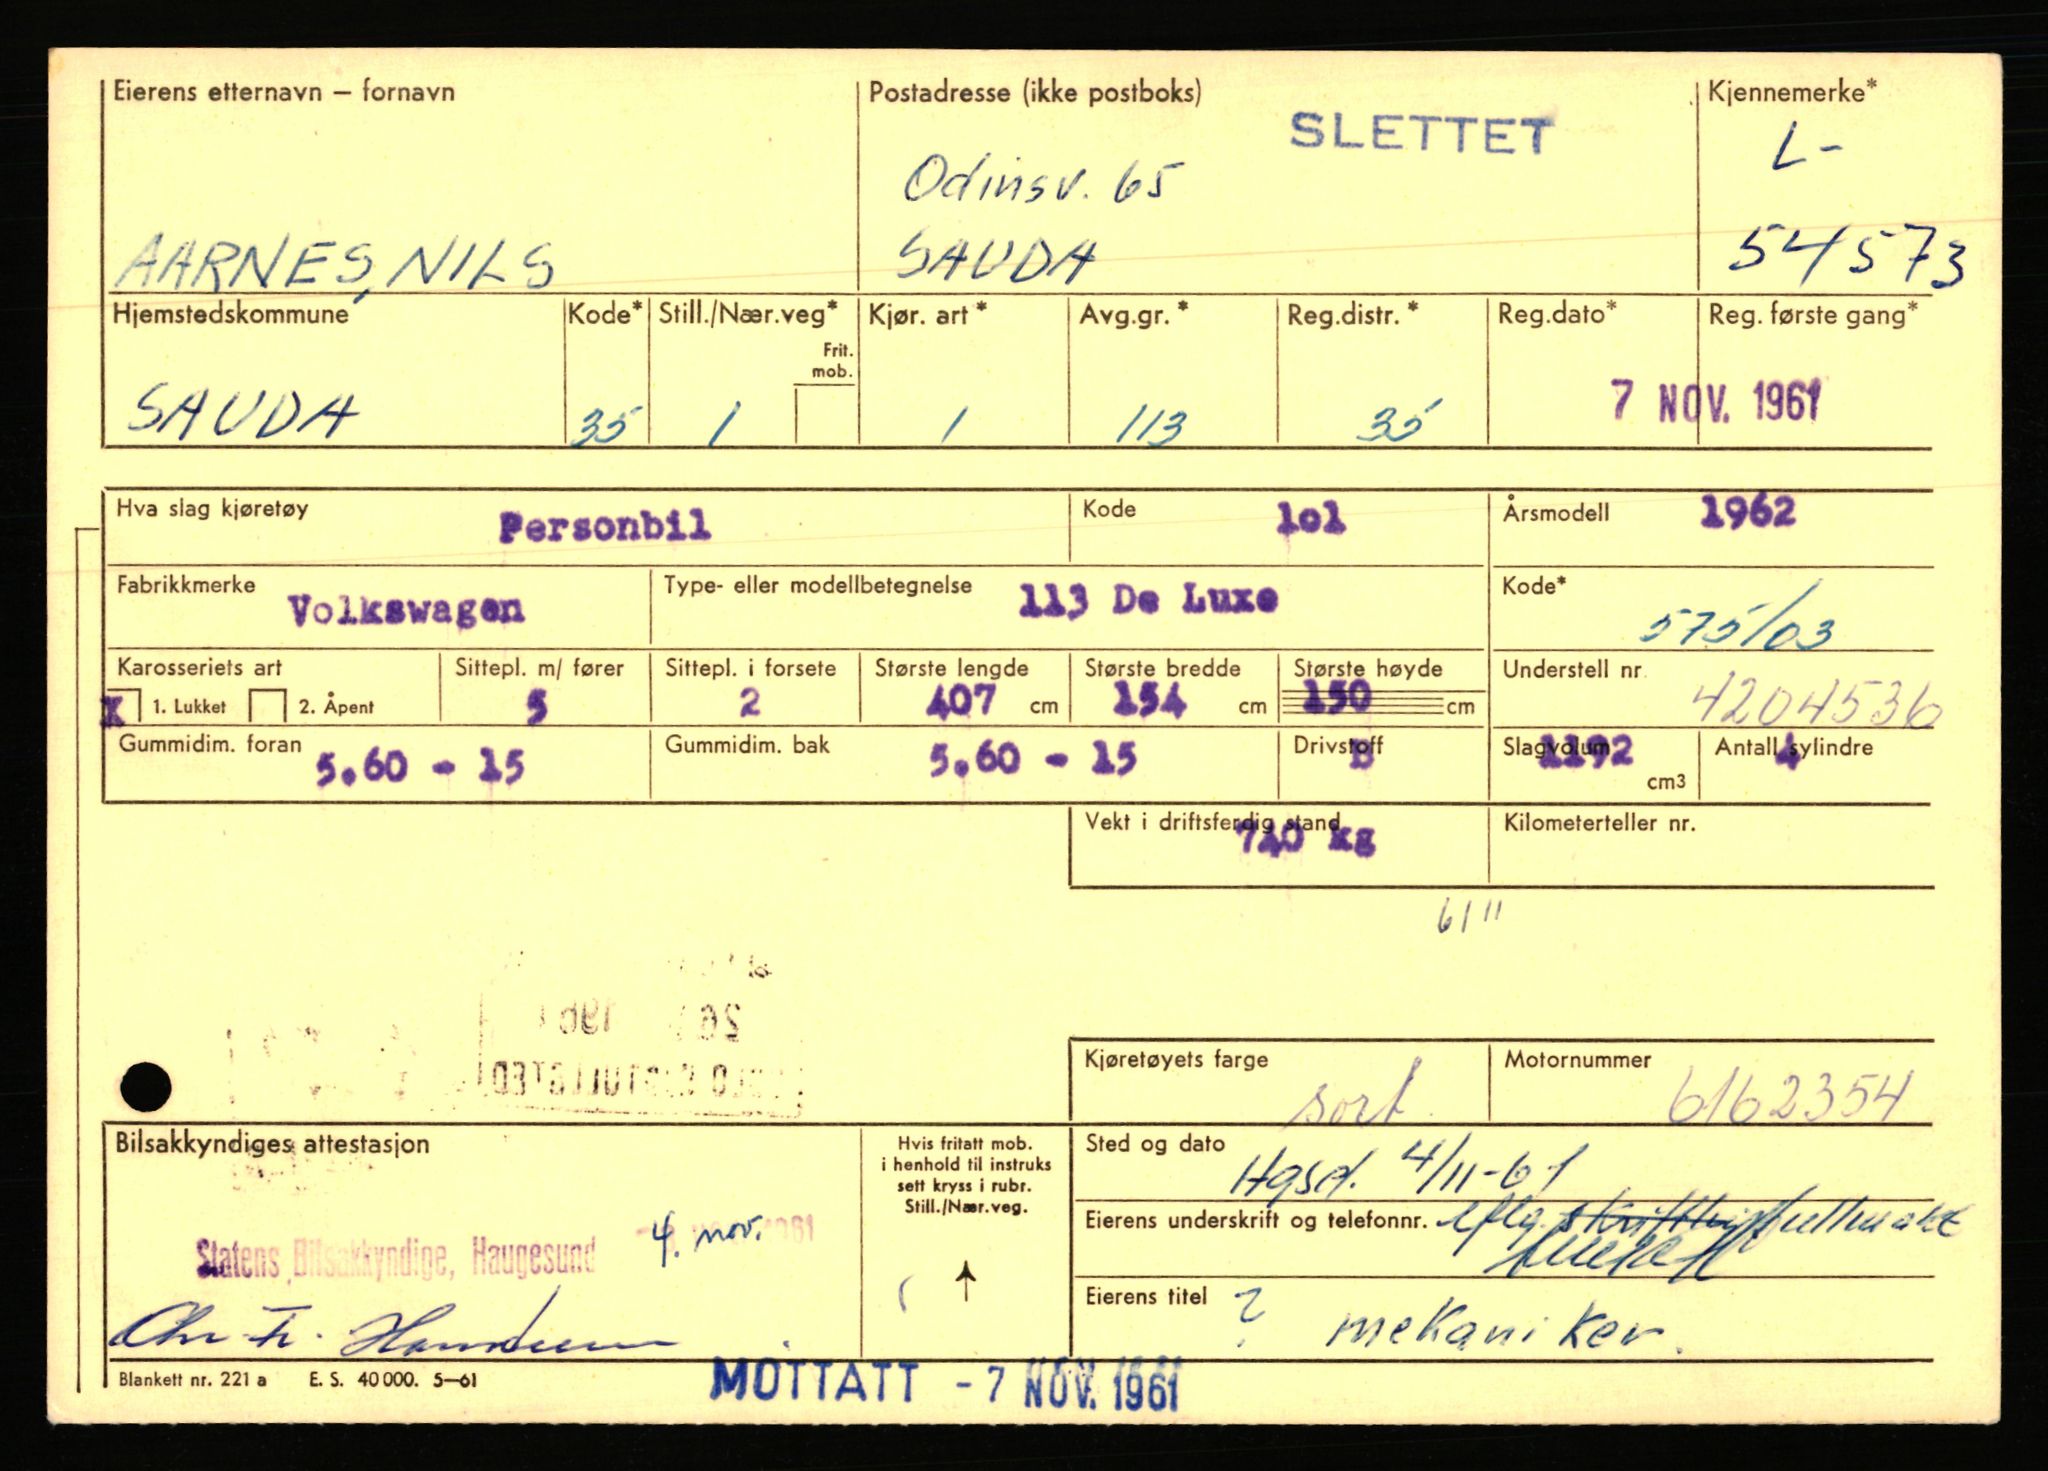 Eierens etternavn – fornavn
Postadresse (ikke postboks)
Kjennemerke*
SLETTET
L-
Odinsv. 65
AARNES, NILS
SAUDA
54573
Hjemstedskommune
Kode*
Still./Nær.veg*
Kjør. art*
Avg.gr.*
Reg.distr.*
Reg.dato*
Reg. første gang*
Frit.
mob.
SAUDA
35
1
1
113
35
7 NOV. 1961
Hva slag kjøretøy
Personbil
Kode
lol
Årsmodell
1962
Fabrikkmerke
Volkswagen
Type- eller modellbetegnelse
113 De Luxe
Kode*
575/03
Karosseriets art
Sittepl. m/ fører
Sittepl. i forsete
Største lengde
Største bredde
Største høyde
Understell nr.
X 1. Lukket
2. Åpent
5
2
407 cm
154 cm
150 cm
4204536
Gummidim. foran
5.60 - 15
Gummidim. bak
5.60 - 15
Drivstoff
B
Slagvolum
1192
cm3
Antall sylindre
4
Vekt i driftsferdig stand
740 kg
Kilometerteller nr.
61"
Kjøretøyets farge
sort
Motornummer
6162354
Bilsakkyndiges attestasjon
Hvis fritatt mob.
i henhold til instruks
sett kryss i rubr.
Still./Nær.veg.
Sted og dato
Hgsd. 4/11-61
Eierens underskrift og telefonnr.
Statens Bilsakkyndige, Haugesund
4. nov. 1961
Eierens titel
? mekaniker.
Blankett nr. 221 a E. S. 40 000. 5–61
MOTTATT - 7 NOV. 1961